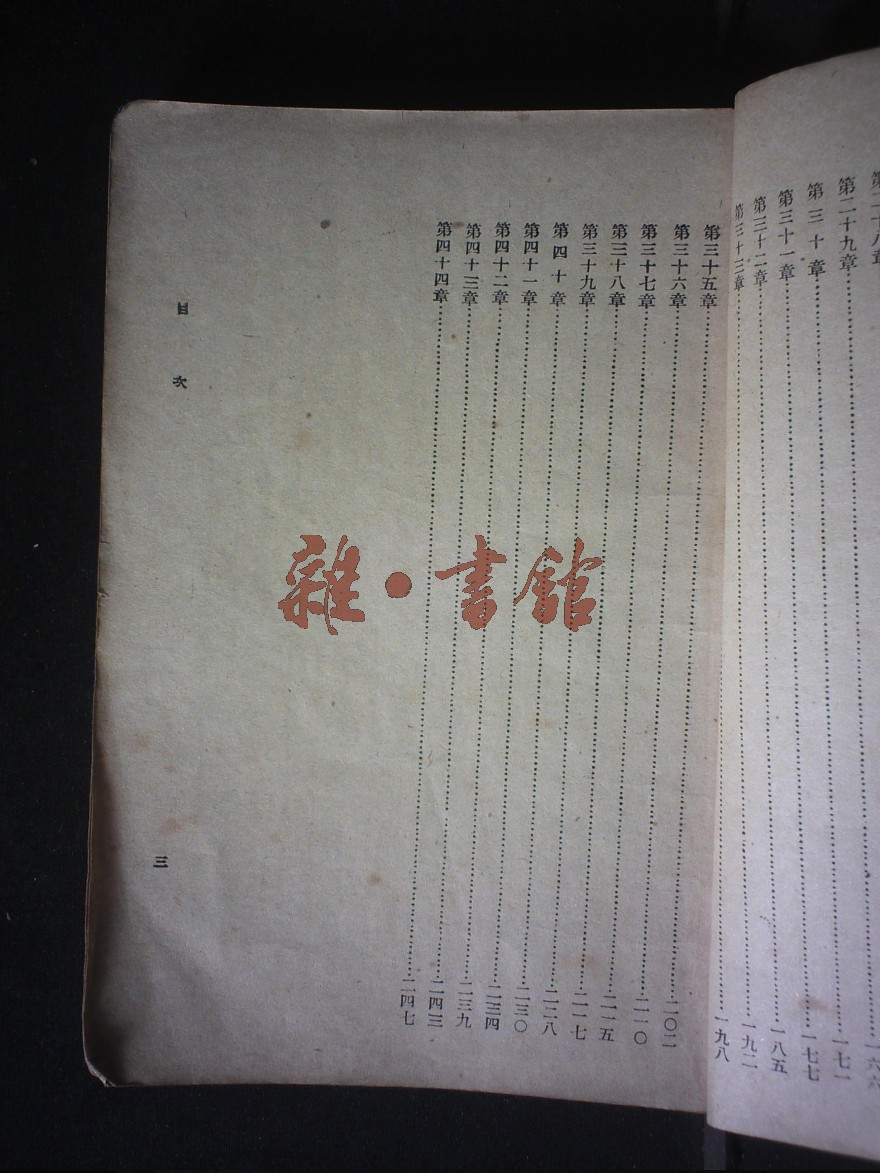 第二十八章……一六六
第二十九章……一七一
第三十章……一七七
第三十一章……一八五
第三十二章……一九二
第三十三章……一九八
第三十五章……二〇二
第三十六章……二一〇
第三十七章……二一五
第三十八章……二一七
第三十九章……二二八
第四十章……二三〇
第四十一章……二三四
第四十二章……二三九
第四十三章……二四三
第四十四章……二四七
目次
三
雜·書館